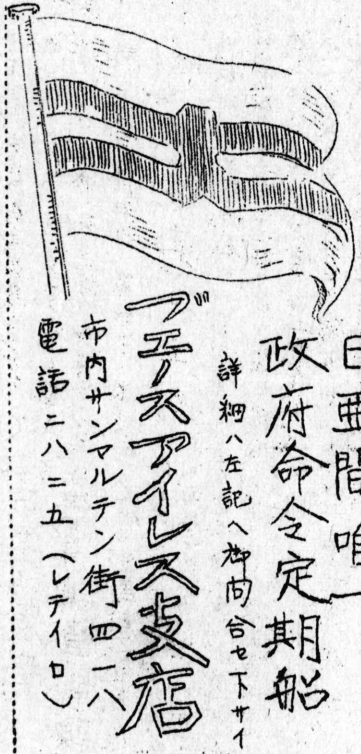 日亜間唯一
政府命令定期船
詳細ハ左記ヘ御問合セ下サイ
ブエノスアイレス支店
市内サンマルテン街四一八
電話二八二五(レテイロ)